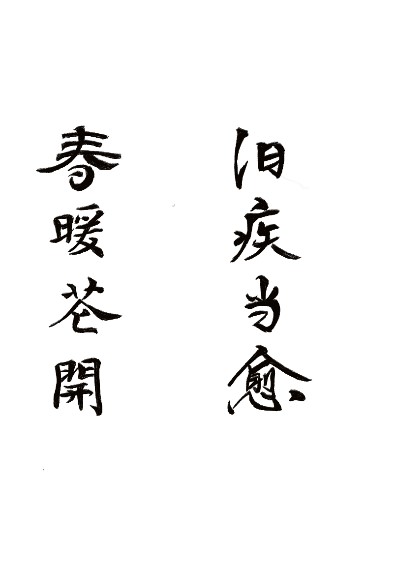 旧疾当愈
春暖花開